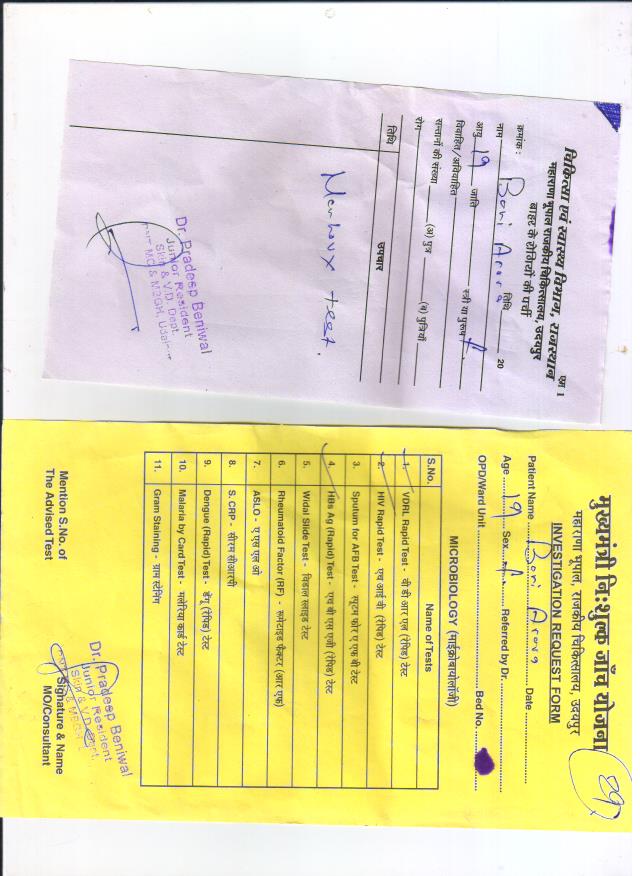 एम 1
चिकित्सा एवं स्वास्थ्य विभाग, राजस्थान
महाराणा भूपाल राजकीय चिकित्सालय, उदयपुर
बाहर के रोगियों की पर्ची
क्रमांक :
नाम Boni Arora तिथि 20
आयु 19 जाति
विवाहित/अविवाहित स्त्री या पुरूष f
सन्तानों की संख्या (अ) पुत्र (ब) पुत्रियाँ
रोग
तिथि उपचार
Mentoux test.
Dr. Pradeep Beniwal
Junior Resident
Skin & V.D. Dept.
MC & MBGH, Udai
मुख्यमंत्री निःशुल्क जाँच योजना
महाराणा भूपाल, राजकीय चिकित्सालय, उदयपुर
INVESTIGATION REQUEST FORM
Patient Name Boni Arora Date
Age 19 Sex f Referred by Dr.
OPD/Ward Unit Bed No.
MICROBIOLOGY (माईक्रोबायोलॉजी)
S.No. Name of Tests
1. VDRL Rapid Test - वी डी आर एल (रेपिड) टेस्ट
2. HIV Rapid Test - एच आई वी (रेपिड) टेस्ट
3. Sputum for AFB Test - स्पूटम फोर ए एफ बी टेस्ट
4. HBs Ag (Rapid) Test - एच बी एस एजी (रेपिड) टेस्ट
5. Widal Slide Test - विडाल स्लाइड टेस्ट
6. Rheumatoid Factor (RF) - रूमेटाइड फैक्टर (आर एफ)
7. ASLO - ए एस एल ओ
8. S. CRP - सीरम सीआरपी
9. Dengue (Rapid) Test - डेंगू (रेपिड) टेस्ट
10. Malaria by Card Test - मलेरिया कार्ड टेस्ट
11. Gram Staining - ग्राम स्टेनिंग
Mention S.No. of
The Advised Test
Dr. Pradeep Beniwal
Junior Resident
Skin & V.D. Dept.
Signature & Name
MO/Consultant